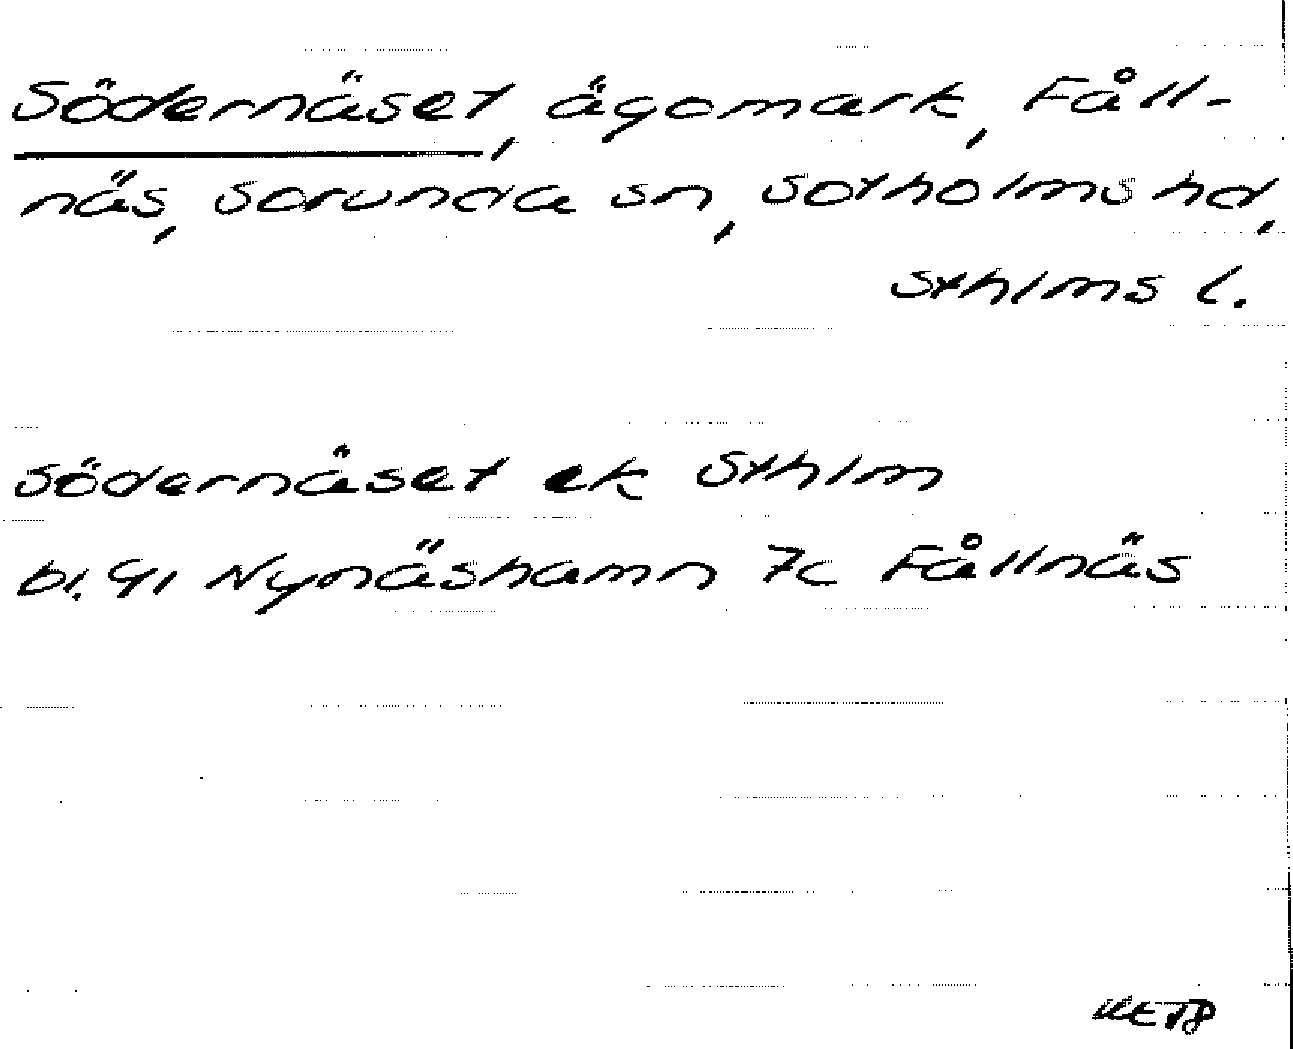 Södernäset, ägomark, Fåll-
näs, Sorunda sn, Sotholms hd,
Sthlms l.
Södernäset ek Sthlm
bl. 91 Nynäshamn 7c Fållnäs